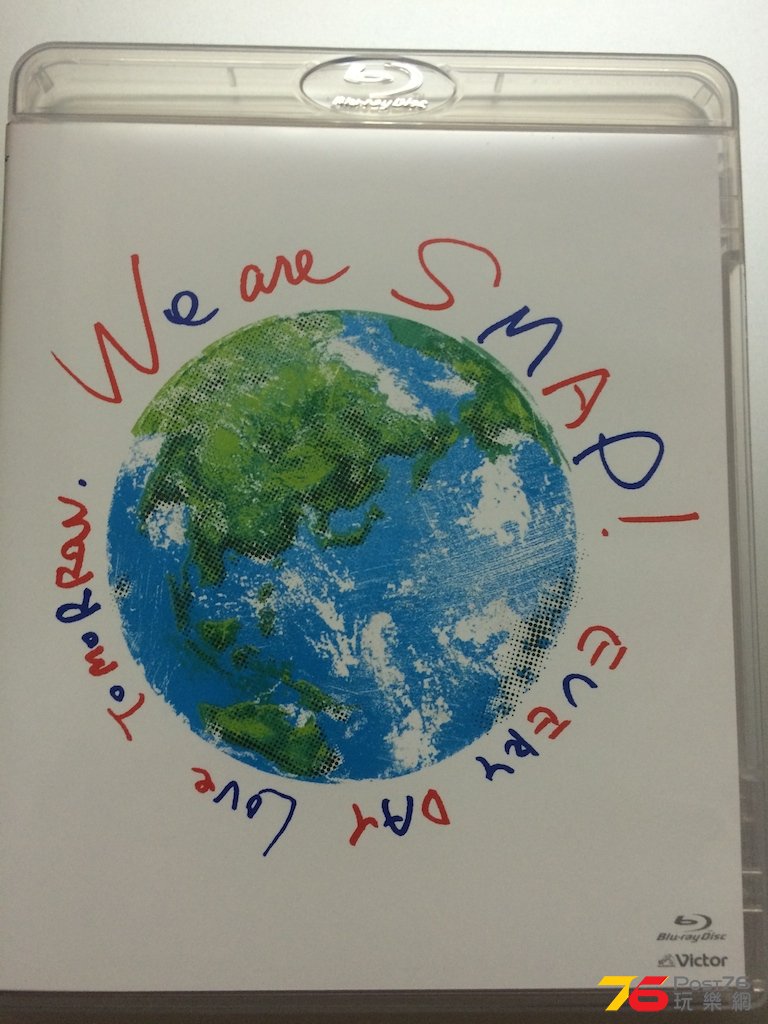 Blu-ray Disc
We are SMAP!
EVERY DAY LOVE TOMORROW.
Blu-ray Disc
Victor
76 Post76
玩樂網